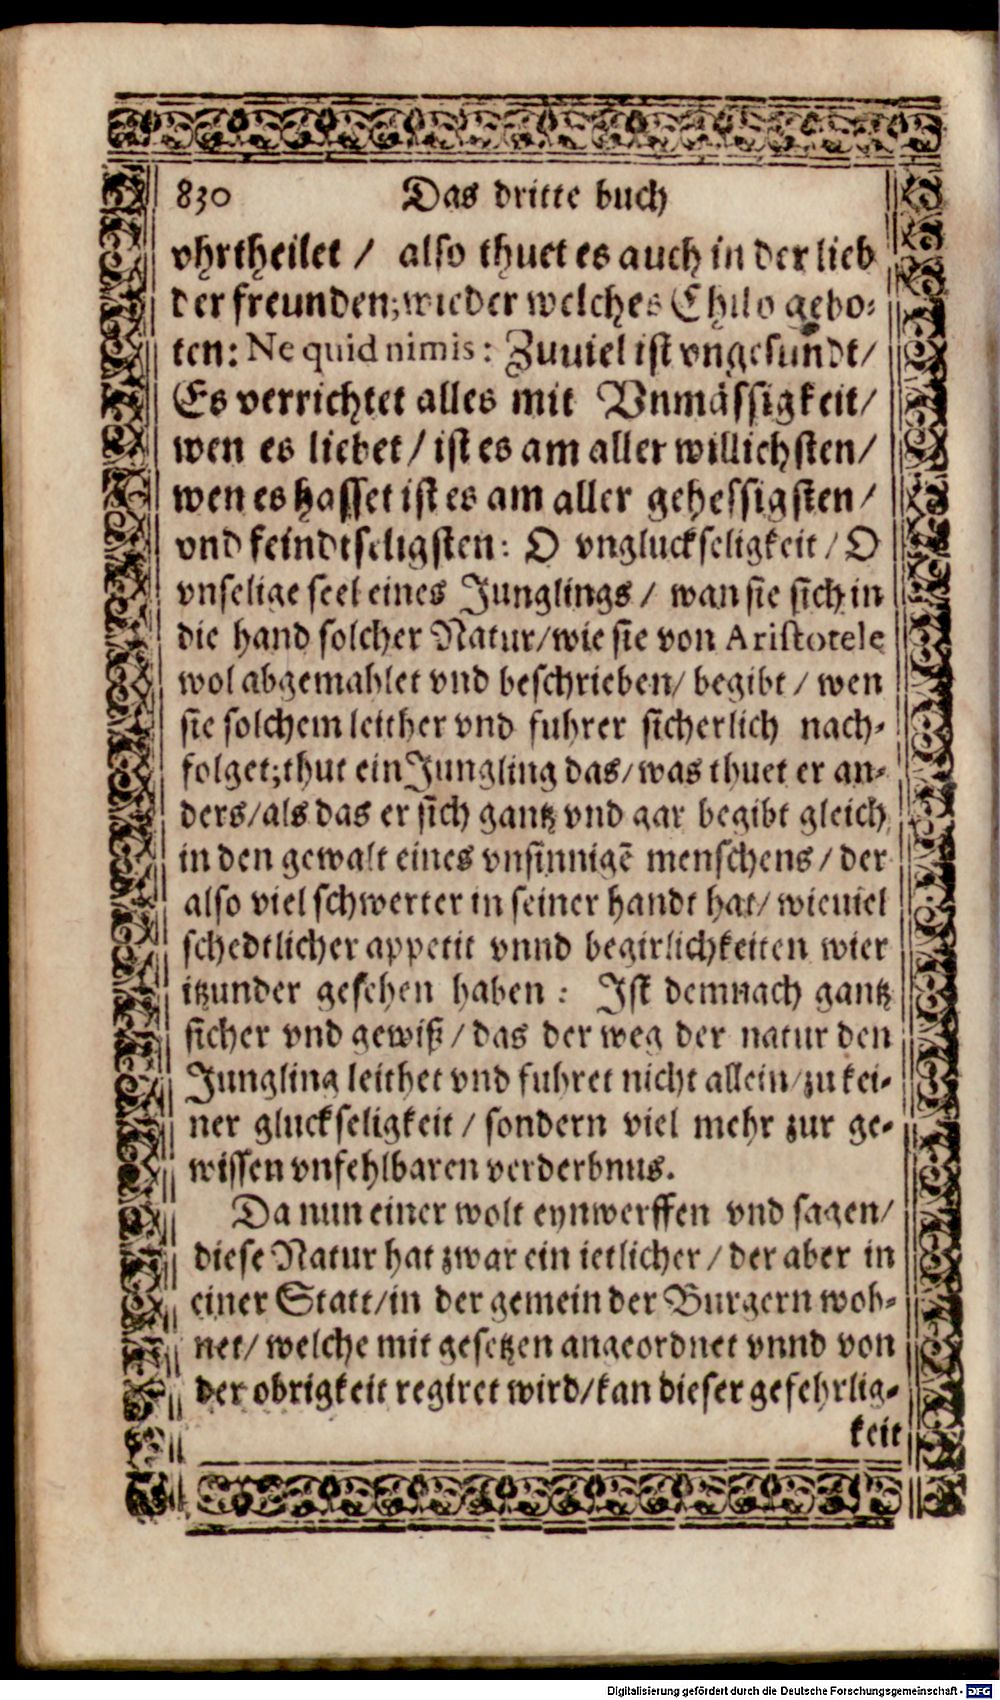 830 Das dritte buch
vhrtheilet / also thuet es auch in der lieb
der freunden; wieder welches Chilo gebo-
ten: Ne quid nimis: Zuuiel ist vngesundt/
Es verrichtet alles mit Vnmässigkeit/
wen es liebet / ist es am aller willichsten/
wen es hasset ist es am aller gehessigsten/
vnd feindtseligsten: O vngluckseligkeit / O
vnselige seel eines Junglings / wan sie sich in
die hand solcher Natur/wie sie von Aristotele
wol abgemahlet vnd beschrieben/ begibt / wen
sie solchem leither vnd fuhrer sicherlich nach-
folget; thut ein Jungling das/was thuet er an-
ders/als das er sich gantz vnd gar begibt gleich
in den gewalt eines vnsinnigē menschens / der
also viel schwerter in seiner handt hat/ wieuiel
schedtlicher appetit vnnd begirlichkeiten wier
itzunder gesehen haben : Ist demnach gantz
sicher vnd gewiß / das der weg der natur den
Jungling leithet vnd fuhret nicht allein/zu kei-
ner gluckseligkeit / sondern viel mehr zur ge-
wissen vnfehlbaren verderbnus.
Da nun einer wolt eynwerffen vnd sagen/
diese Natur hat zwar ein ietlicher / der aber in
einer Statt/in der gemein der Burgern woh-
net/ welche mit gesetzen angeordnet vnnd von
der obrigkeit regiret wird/kan dieser gefehrlig-
keit
Digitalisierung gefördert durch die Deutsche Forschungsgemeinschaft - DFG